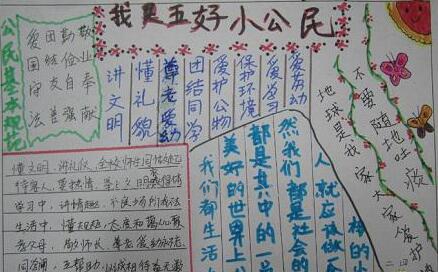 我是五好小公民
公民基本规范
爱国守法
团结友善
勤俭自强
敬业奉献
讲文明
懂礼貌
尊老爱幼
团结同学
爱护公物
保护环境
爱学习
爱劳动
不要随地吐痰
地球是我家大家爱护
我们都生活
美好的世界上
都是其中的一
然我们都是社会的
人就应该做
懂文明，讲礼仪，全校师生同
待客人，要热情，
学习中，讲情趣，不良场所
生活中，懂规矩，态度和蔼
父母，敬师长，尊老爱幼
互帮助，以诚相待